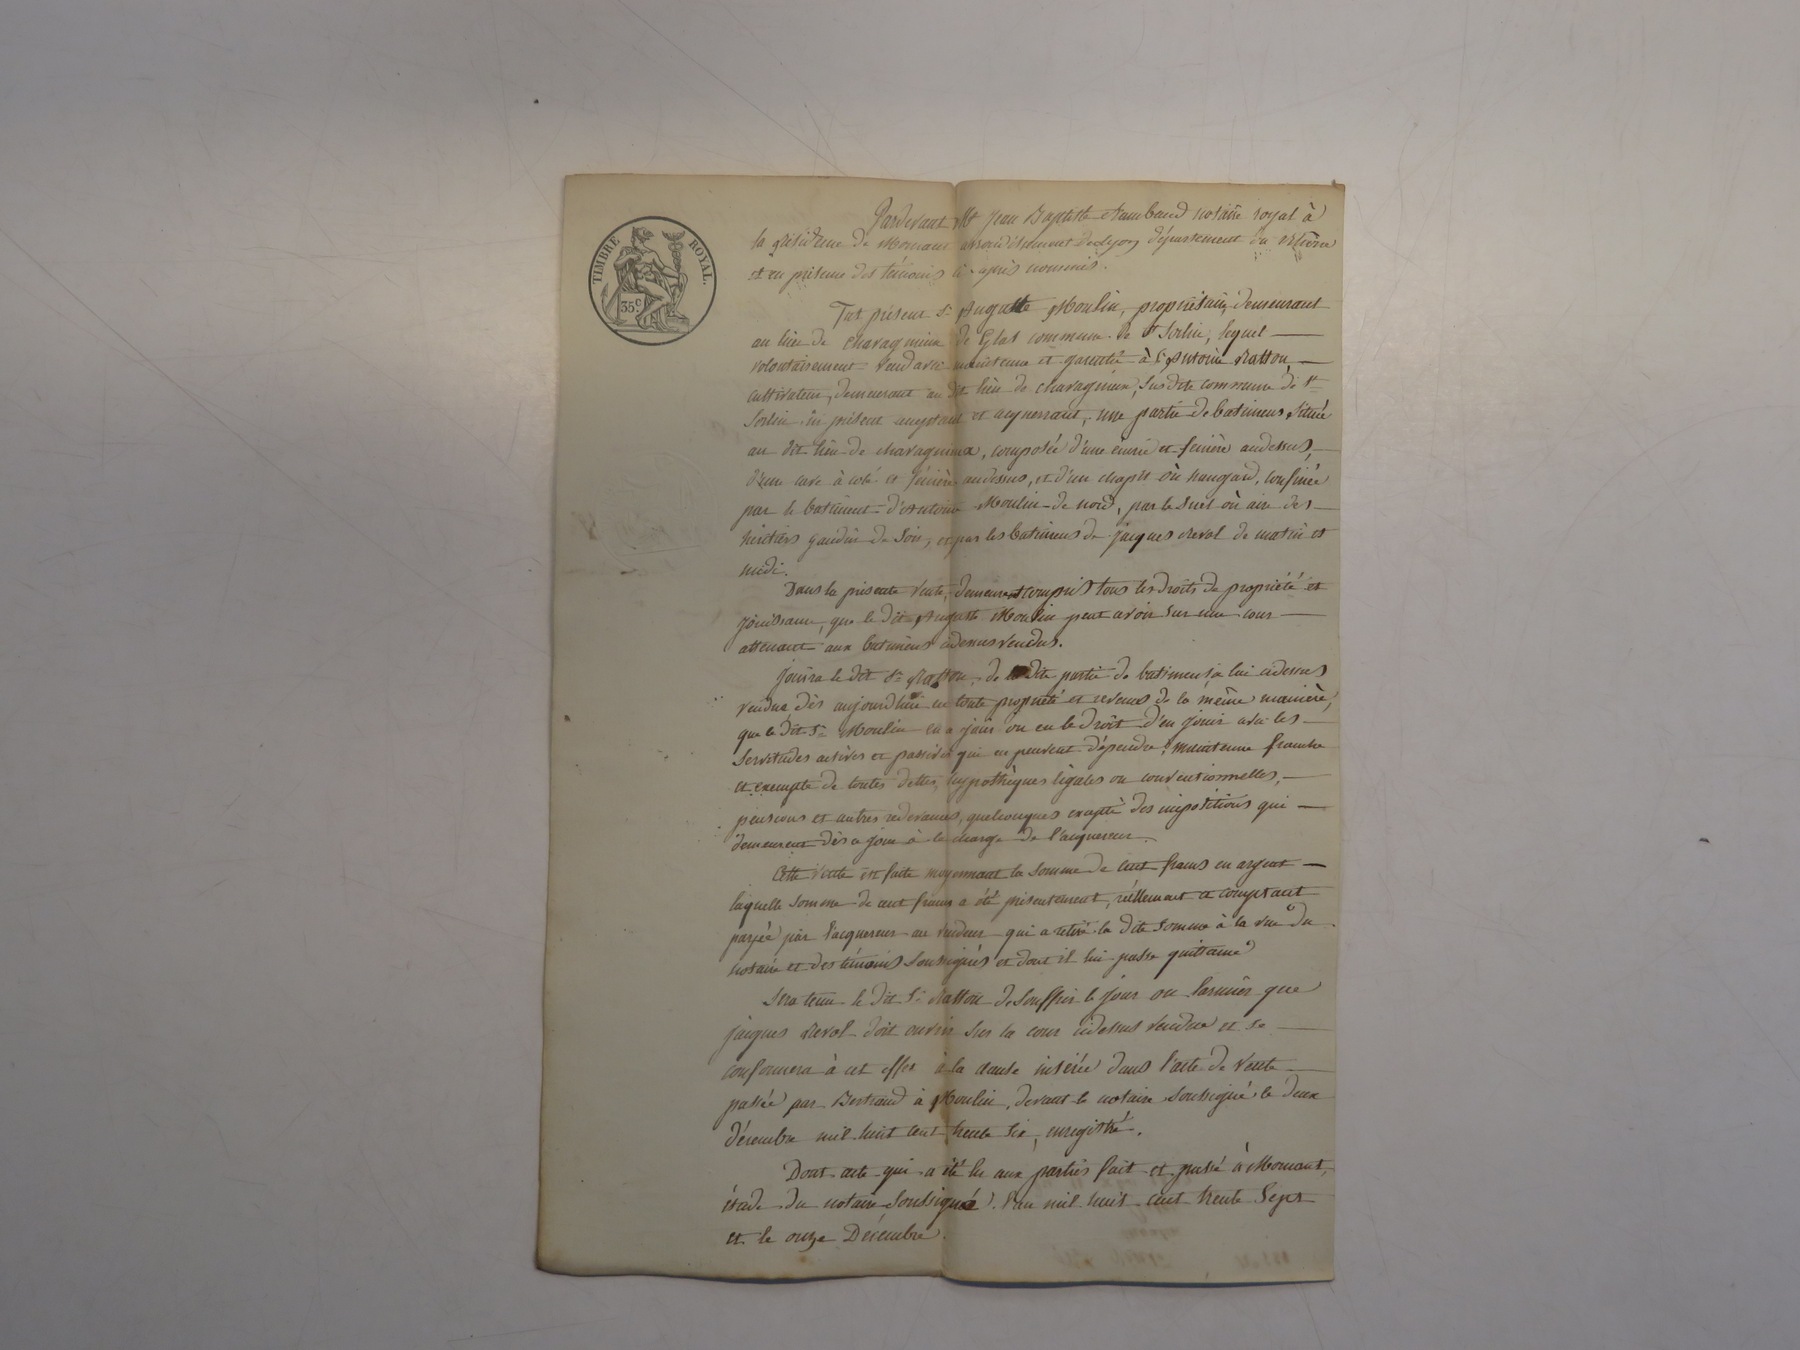 TIMBRE ROYAL.
35 c
Pardevant Mt Jean Baptiste notaire royal à
la résidence de Mornant arrondissement de Lyon département du Rhône
et en présence des témoins ci-après nommés.
Fut présent Sr Auguste Moulin, propriétaire, demeurant
au lieu de charagnieux de commune de St Sorlin, lequel
volontairement vend avec maintenue et garantie à Sr Antoine Ratton,
cultivateur, demeurant au dit lieu de charagnieux, susdite commune de St
Sorlin, ici présent acceptant et acquerrant, une partie de batimens, située
au dit lieu de charagnieux, composée d'une écurie et fenière audessus,
d'une cave à coté et fénière audessus, et d'un chapit où hangard, confinée
par le batiment d'Antoine Moulin de nord, par le suel où aire des
héritiers gaudin de soir, et par les batimens de jacques Revol de matin et
midi.
Dans la présente vente, demeurent compris tous les droits de propriété et
jouissance, que le dit Auguste Moulin peut avoir sur une cour
attenant aux batimens cidessus vendus.
jouira le dit Sr Ratton de la dite partie de batimens à lui cidessus
vendue dès aujourdhui en toute propriété et revenus de la même manière,
que le dit Sr Moulin en a joui ou eu le droit d'en jouir avec les
servitudes actives et passives qui en peuvent dépendre; maintenue franche
et exempte de toutes dettes, hypothèques légales ou conventionnelles,
pensions et autres redevances, quelconques excepté des impositions qui
demeurent dès ce jour à la charge de l'acquereur.
Cette vente est faite moyennant la somme de cent francs en argent
laquelle somme de cent francs a été présentement, réellement et comptant
payée par l'acquereur au vendeur qui a retiré la dite somme à la vue du
notaire et des témoins soussignés et dont il lui passe quittance
Sera tenu le dit Sr Ratton de souffrir le jour ou larmier que
jacques Revol doit ouvrir sur la cour cidessus vendue et se
conformera à cet effet à la clause insérée dans l'acte de vente
passée par Bertrand à Moulin, devant le notaire soussigné le deux
décembre mil huit cent trente six, enregistré.
Dont acte qui a été lu aux parties fait et passé à Mornant,
étude du notaire soussigné l'an mil huit cent trente sept
et le onze Décembre.